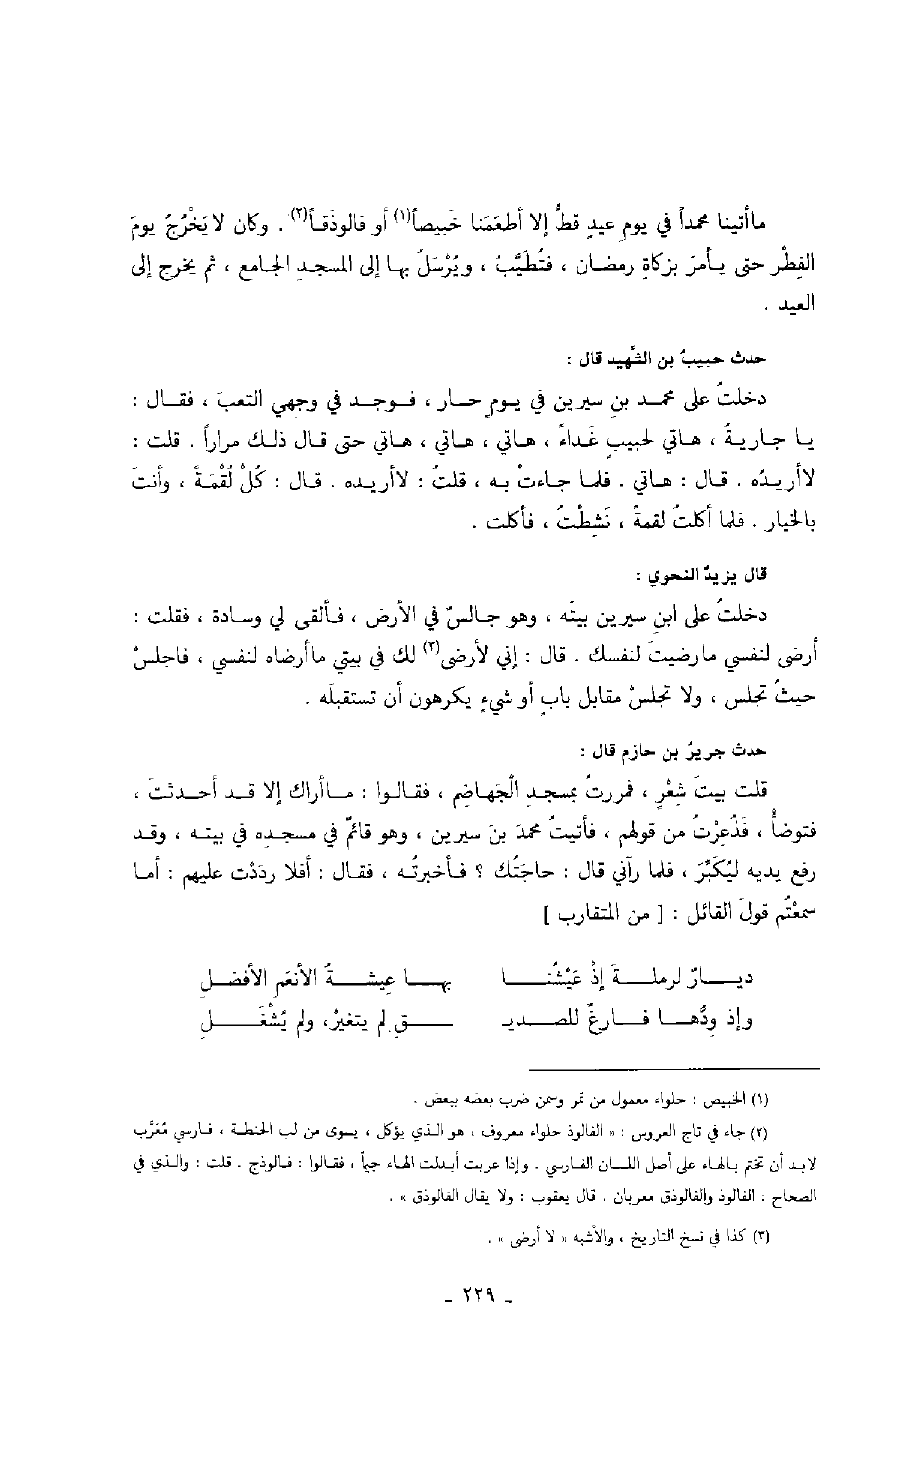 ماأتينا محمداً في يومِ عيدٍ قطُّ إلا أطعَمَنا خَبيصاً(١) أو فالوذَقاً(٢) . وكان لا يَخْرُجُ يومَ
الفِطْر حتى يأمرَ بزكاةِ رمضان ، فتُطَيَّبُ ، ويُرْسَلُ بها إلى المسجد الجامع ، ثم يخرج إلى
العيد .
حدث حبيبُ بن الشَّهيد قال :
دخلتُ على محمد بن سيرين في يوم حار ، فوجد في وجهي التعبَ ، فقال :
يا جاريةُ ، هاتي لحبيبٍ غَداءً ، هاتي ، هاتي ، هاتي حتى قال ذلك مراراً . قلت :
لاأريدُه . قال : هاتي . فلما جاءتْ به ، قلتُ : لاأريده . قال : كُلْ لُقْمَةً ، وأنتَ
بالخيار . فلما أكلتُ لقمةً ، نَشِطْتُ ، فأكلت .
قال يزيدُ النحوي :
دخلتُ على ابنِ سيرين بيتَه ، وهو جالسٌ في الأرض ، فألقى لي وسادة ، فقلت :
أرضى لنفسي مارضيتَ لنفسك . قال : إني لأرضى(٣) لك في بيتي ماأرضاه لنفسي ، فاجلسْ
حيثُ تجلس ، ولا تجلسْ مقابل بابٍ أو شيءٍ يكرهون أن تستقبلَه .
حدث جريرُ بن حازم قال :
قلت بيتَ شِعْرٍ ، فمررتُ بمسجدِ الْجَهاضم ، فقالوا : ماأراك إلا قد أحدثتَ ،
فتوضأْ ، فذُعِرْتُ من قولهم ، فأتيتُ محمدَ بنَ سيرين ، وهو قائمٌ في مسجده في بيته ، وقد
رفع يديه ليُكَبِّرَ ، فلما رآني قال : حاجتُك ؟ فأخبرتُه ، فقال : أفلا ردَدْت عليهم : أما
سمعْتُم قولَ القائل : [ من المتقارب ]
ديارٌ لرملةَ إذْ عَيْشُنا بها عيشةُ الأنعَم الأفضلِ
وإذ ودُّها فارغٌ للصديـ ـقِ لم يتغيرْ، ولم يُشْغَلِ
(١) الخبيص : حلواء معمول من تمر وسمن ضرب بعضه ببعض .
(٢) جاء في تاج العروس : « الفالوذ حلواء معروف ، هو الذي يؤكل ، يسوى من لب الحنطة ، فارسي مُعَرَّب
لابد أن تختم بالهاء على أصل اللسان الفارسي . وإذا عربت أبدلت الهاء جيماً ، فقالوا : فالوذج . قلت : والذي في
الصحاح : الفالوذ والفالوذق معربان . قال يعقوب : ولا يقال الفالوذق » .
(٣) كذا في نسخ التاريخ ، والأشبه « لا أرضى » .
ـ ٢٢٩ ـ